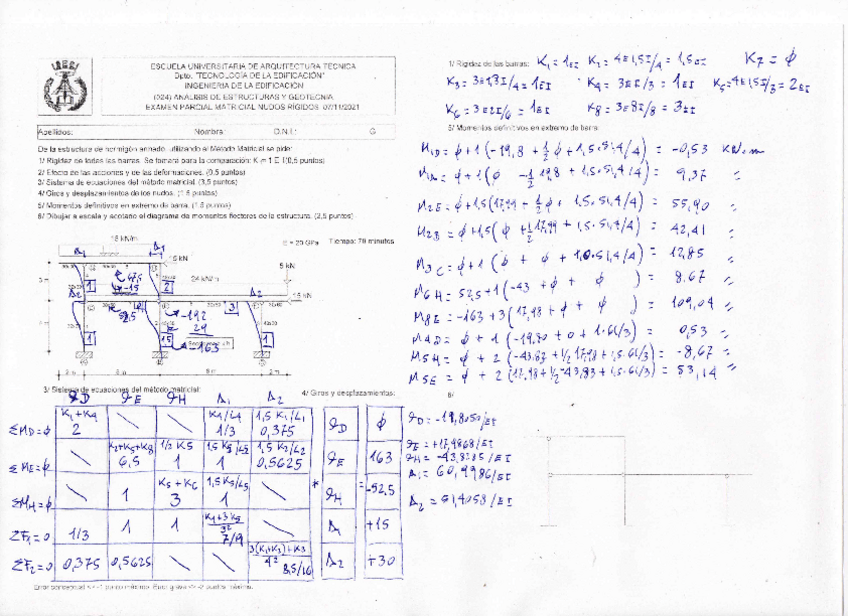 ESCUELA UNIVERSITARIA DE ARQUITECTURA TECNICA
Dpto. "TECNOLOGÍA DE LA EDIFICACIÓN"
INGENIERIA DE LA EDIFICACIÓN
(024) ANALISIS DE ESTRUCTURAS Y GEOTECNIA
EXAMEN PARCIAL MATRICIAL NUDOS RÍGIDOS 07/11/2021
Apellidos: Nombre: D.N.I.: G
De la estructura de hormigón armado, utilizando el Método Matricial se pide:
1/ Rigidez de todas las barras. Se tomará para la comparación: K=1 E I (0,5 puntos)
2/ Efecto de las acciones y de las deformaciones. (0,5 puntos)
3/ Sistema de ecuaciones del método matricial. (3,5 puntos)
4/ Giros y desplazamientos de los nudos. (1,5 puntos)
5/ Momentos definitivos en extremo de barra. (1,5 puntos)
6/ Dibujar a escala y acotado el diagrama de momentos flectores de la estructura. (2,5 puntos)
E = 20 GPa Tiempo: 70 minutos
15 kN/m
15 kN
5 kN
24 kN/m
15 kN
67,5
-15
52,5
-192
29
-163
3/ Sistema de ecuaciones del método matricial:
θD θE θH Δ1 Δ2
ΣMD=ϕ K1+K4 2 K4/L4 1/3 1,5 K1/L1 0,375 θD ϕ
ΣME=ϕ K2+K5+K8 6,5 1/2 K5 1 1,5 K5/L5 1 1,5 K2/L2 0,5625 θE 163
ΣMH=ϕ 1 K5+K6 3 1,5K5/L5 1 * θH = -52,5
ΣF1=0 1/3 1 1 K4+3K5 3² 7/9 Δ1 +15
ΣF2=0 0,375 0,5625 3(K1+K2)+K3 4² 8,5/16 Δ2 +30
4/ Giros y desplazamientos:
θD=-19,8050/EI
θE=+17,9868/EI
θH=-43,8285/EI
Δ1=60,9986/EI
Δ2=51,4058/EI
1/ Rigidez de las barras: K1=1EI K2=4E1,5I/4=1,5EI K7=ϕ
K3=3E1,3I/4=1EI K4=3EI/3=1EI K5=4E1,5I/3=2EI
K6=3E2I/6=1EI K8=3E8I/8=3EI
5/ Momentos definitivos en extremo de barra:
M1D=ϕ+1(-19,8+½ϕ+1,5·51,4/4)=-0,53 KN·m
=ϕ+1(ϕ-½19,8+1,5·51,4/4)=9,37 "
M2E=ϕ+1,5(17,99+½ϕ+1,5·51,4/4)=55,90 "
M2B=ϕ+1,5(ϕ+½17,99+1,5·51,4/4)=42,41 "
M3C=ϕ+1(ϕ+ϕ+1,0·51,4/4)=12,85 "
M6H=52,5+1(-43+ϕ+ϕ)=8,67 "
M8E=-163+3(17,98+ϕ+ϕ)=109,04 "
M4D=ϕ+1(-19,80+0+1·61/3)=0,53 "
M5H=ϕ+2(-43,83+1/2 17,98+1,5·61/3)=-8,67 "
M5E=ϕ+2(17,98+1/2-43,83+1,5·61/3)=53,14 "
6/